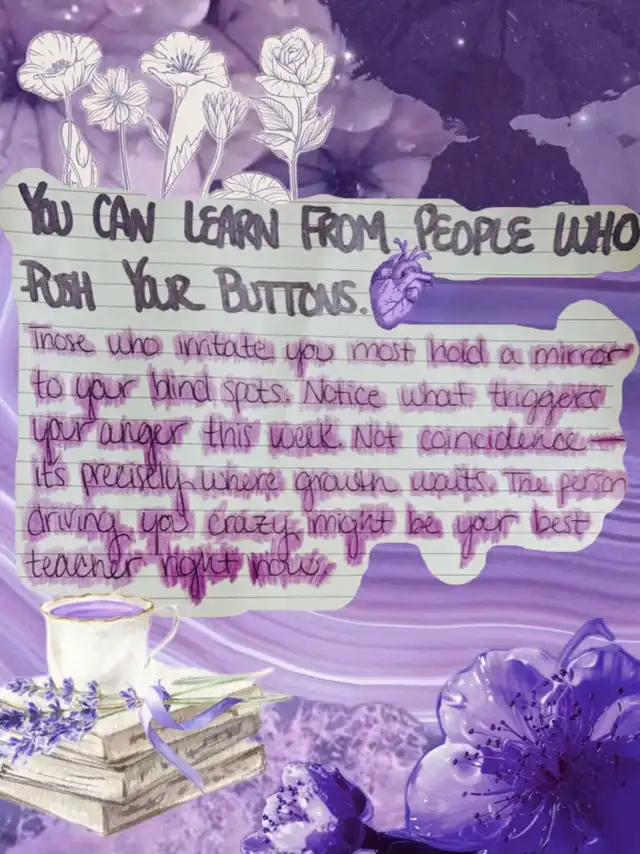 YOU CAN LEARN FROM PEOPLE WHO
PUSH YOUR BUTTONS.
Those who irritate you most hold a mirror
to your blind spots. Notice what triggers
your anger this week. Not coincidence —
it's precisely where growth waits. The person
driving you crazy might be your best
teacher right now.